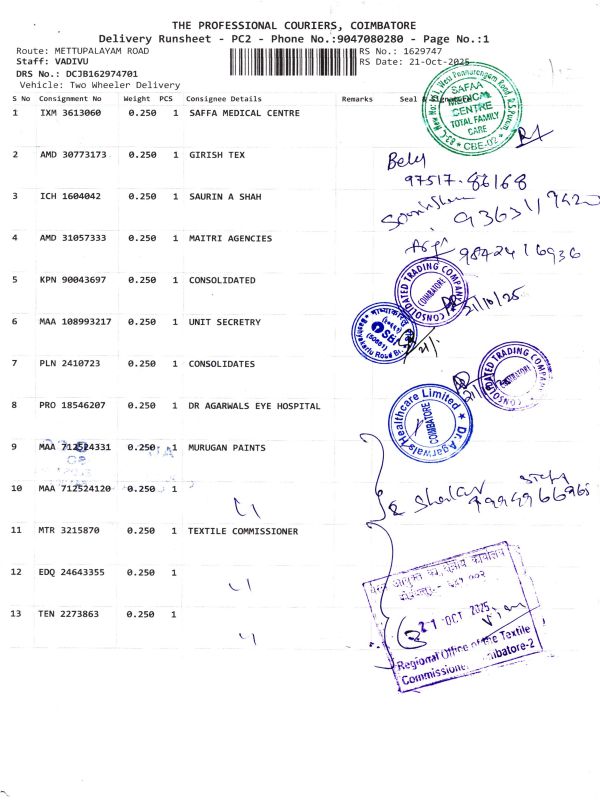 THE PROFESSIONAL COURIERS, COIMBATORE
Delivery Runsheet - PC2 - Phone No.:9047080280 - Page No.:1
Route: METTUPALAYAM ROAD RS No.: 1629747
Staff: VADIVU RS Date: 21-Oct-2025
DRS No.: DCJB162974701
Vehicle: Two Wheeler Delivery
S No Consignment No Weight PCS Consignee Details Remarks Seal & Signature
1 IXM 3613060 0.250 1 SAFFA MEDICAL CENTRE
SAFAA MEDICAL CENTRE
TOTAL FAMILY CARE
CBE-02
2 AMD 30773173 0.250 1 GIRISH TEX
97517-86168
3 ICH 1604042 0.250 1 SAURIN A SHAH
4 AMD 31057333 0.250 1 MAITRI AGENCIES
9842416936
5 KPN 90043697 0.250 1 CONSOLIDATED
CONSOLIDATED TRADING COMPANY
COIMBATORE
21/10/25
6 MAA 108993217 0.250 1 UNIT SECRETRY
SBI
7 PLN 2410723 0.250 1 CONSOLIDATES
CONSOLIDATED TRADING COMPANY
COIMBATORE
8 PRO 18546207 0.250 1 DR AGARWALS EYE HOSPITAL
Dr. Agarwals Healthcare Limited
COIMBATORE
9 MAA 712524331 0.250 1 MURUGAN PAINTS
10 MAA 712524120 0.250 1
11 MTR 3215870 0.250 1 TEXTILE COMMISSIONER
12 EDQ 24643355 0.250 1
13 TEN 2273863 0.250 1
21 OCT 2025
Regional Office of the Textile